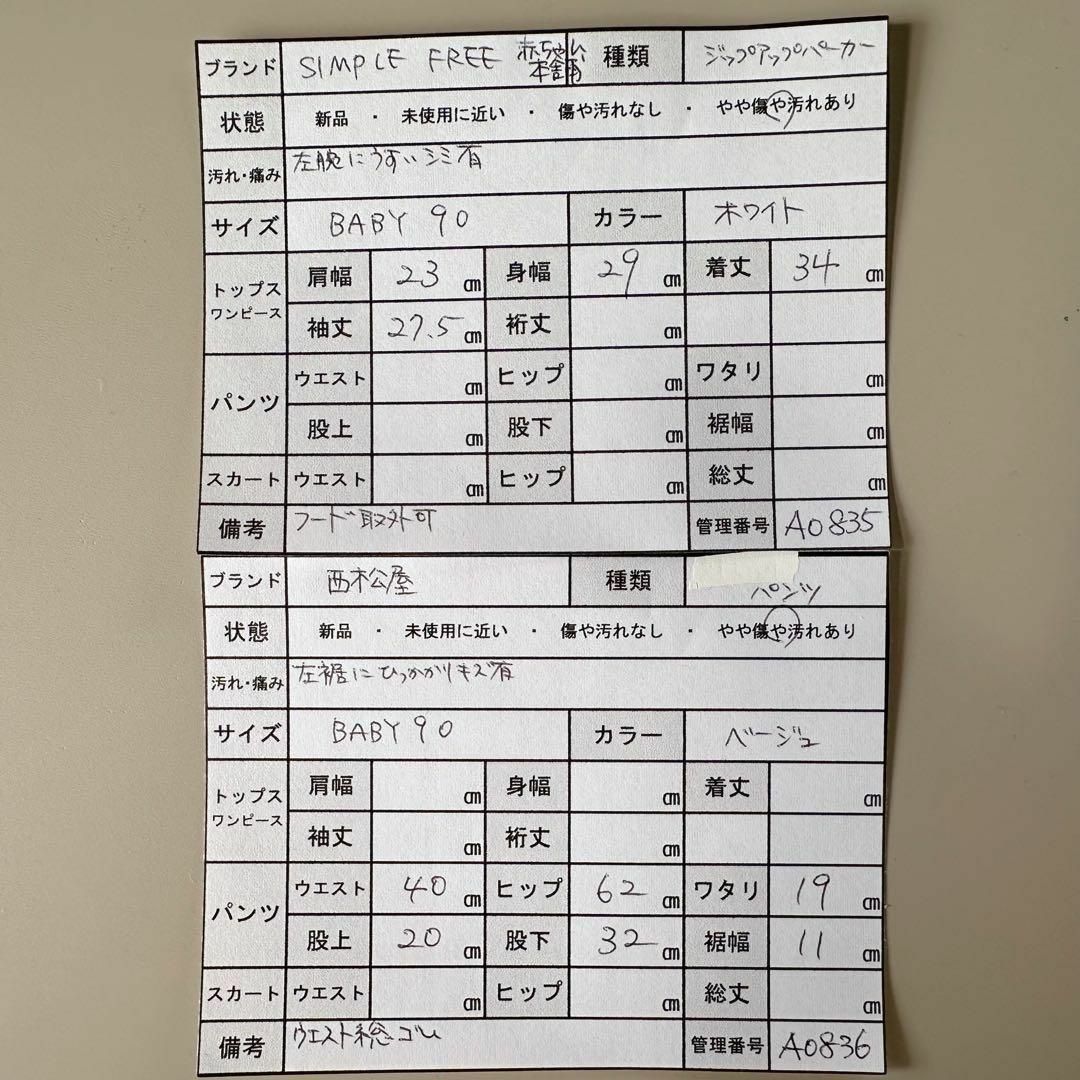 ブランド SIMPLE FREE 赤ちゃん本舗 種類 ジップアップパーカー
状態 新品 ・ 未使用に近い ・ 傷や汚れなし ・ やや傷や汚れあり
汚れ・痛み 左腕にうすいシミ有
サイズ BABY 90 カラー ホワイト
トップス ワンピース 肩幅 23 ㎝ 身幅 29 ㎝ 着丈 34 ㎝
袖丈 27.5 ㎝ 裄丈 ㎝
パンツ ウエスト ㎝ ヒップ ㎝ ワタリ ㎝
股上 ㎝ 股下 ㎝ 裾幅 ㎝
スカート ウエスト ㎝ ヒップ ㎝ 総丈 ㎝
備考 フード取外可 管理番号 A0835
ブランド 西松屋 種類 パンツ
状態 新品 ・ 未使用に近い ・ 傷や汚れなし ・ やや傷や汚れあり
汚れ・痛み 左裾にひっかかりキズ有
サイズ BABY 90 カラー ベージュ
トップス ワンピース 肩幅 ㎝ 身幅 ㎝ 着丈 ㎝
袖丈 ㎝ 裄丈 ㎝
パンツ ウエスト 40 ㎝ ヒップ 62 ㎝ ワタリ 19 ㎝
股上 20 ㎝ 股下 32 ㎝ 裾幅 11 ㎝
スカート ウエスト ㎝ ヒップ ㎝ 総丈 ㎝
備考 ウエスト総ゴム 管理番号 A0836